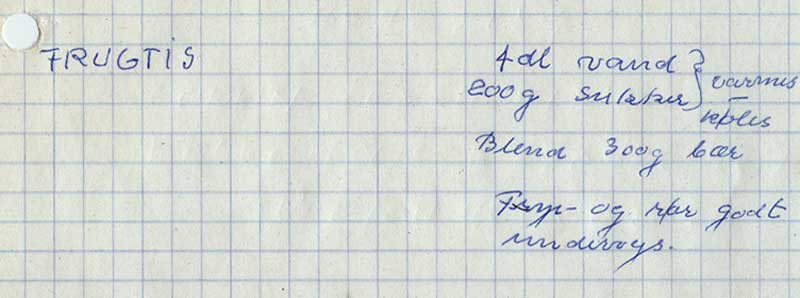 FRUGTIS
4 dl vand
200g sukker
varmes
–
køles
Blend 300g bær
Frys - og rør godt
undervejs.